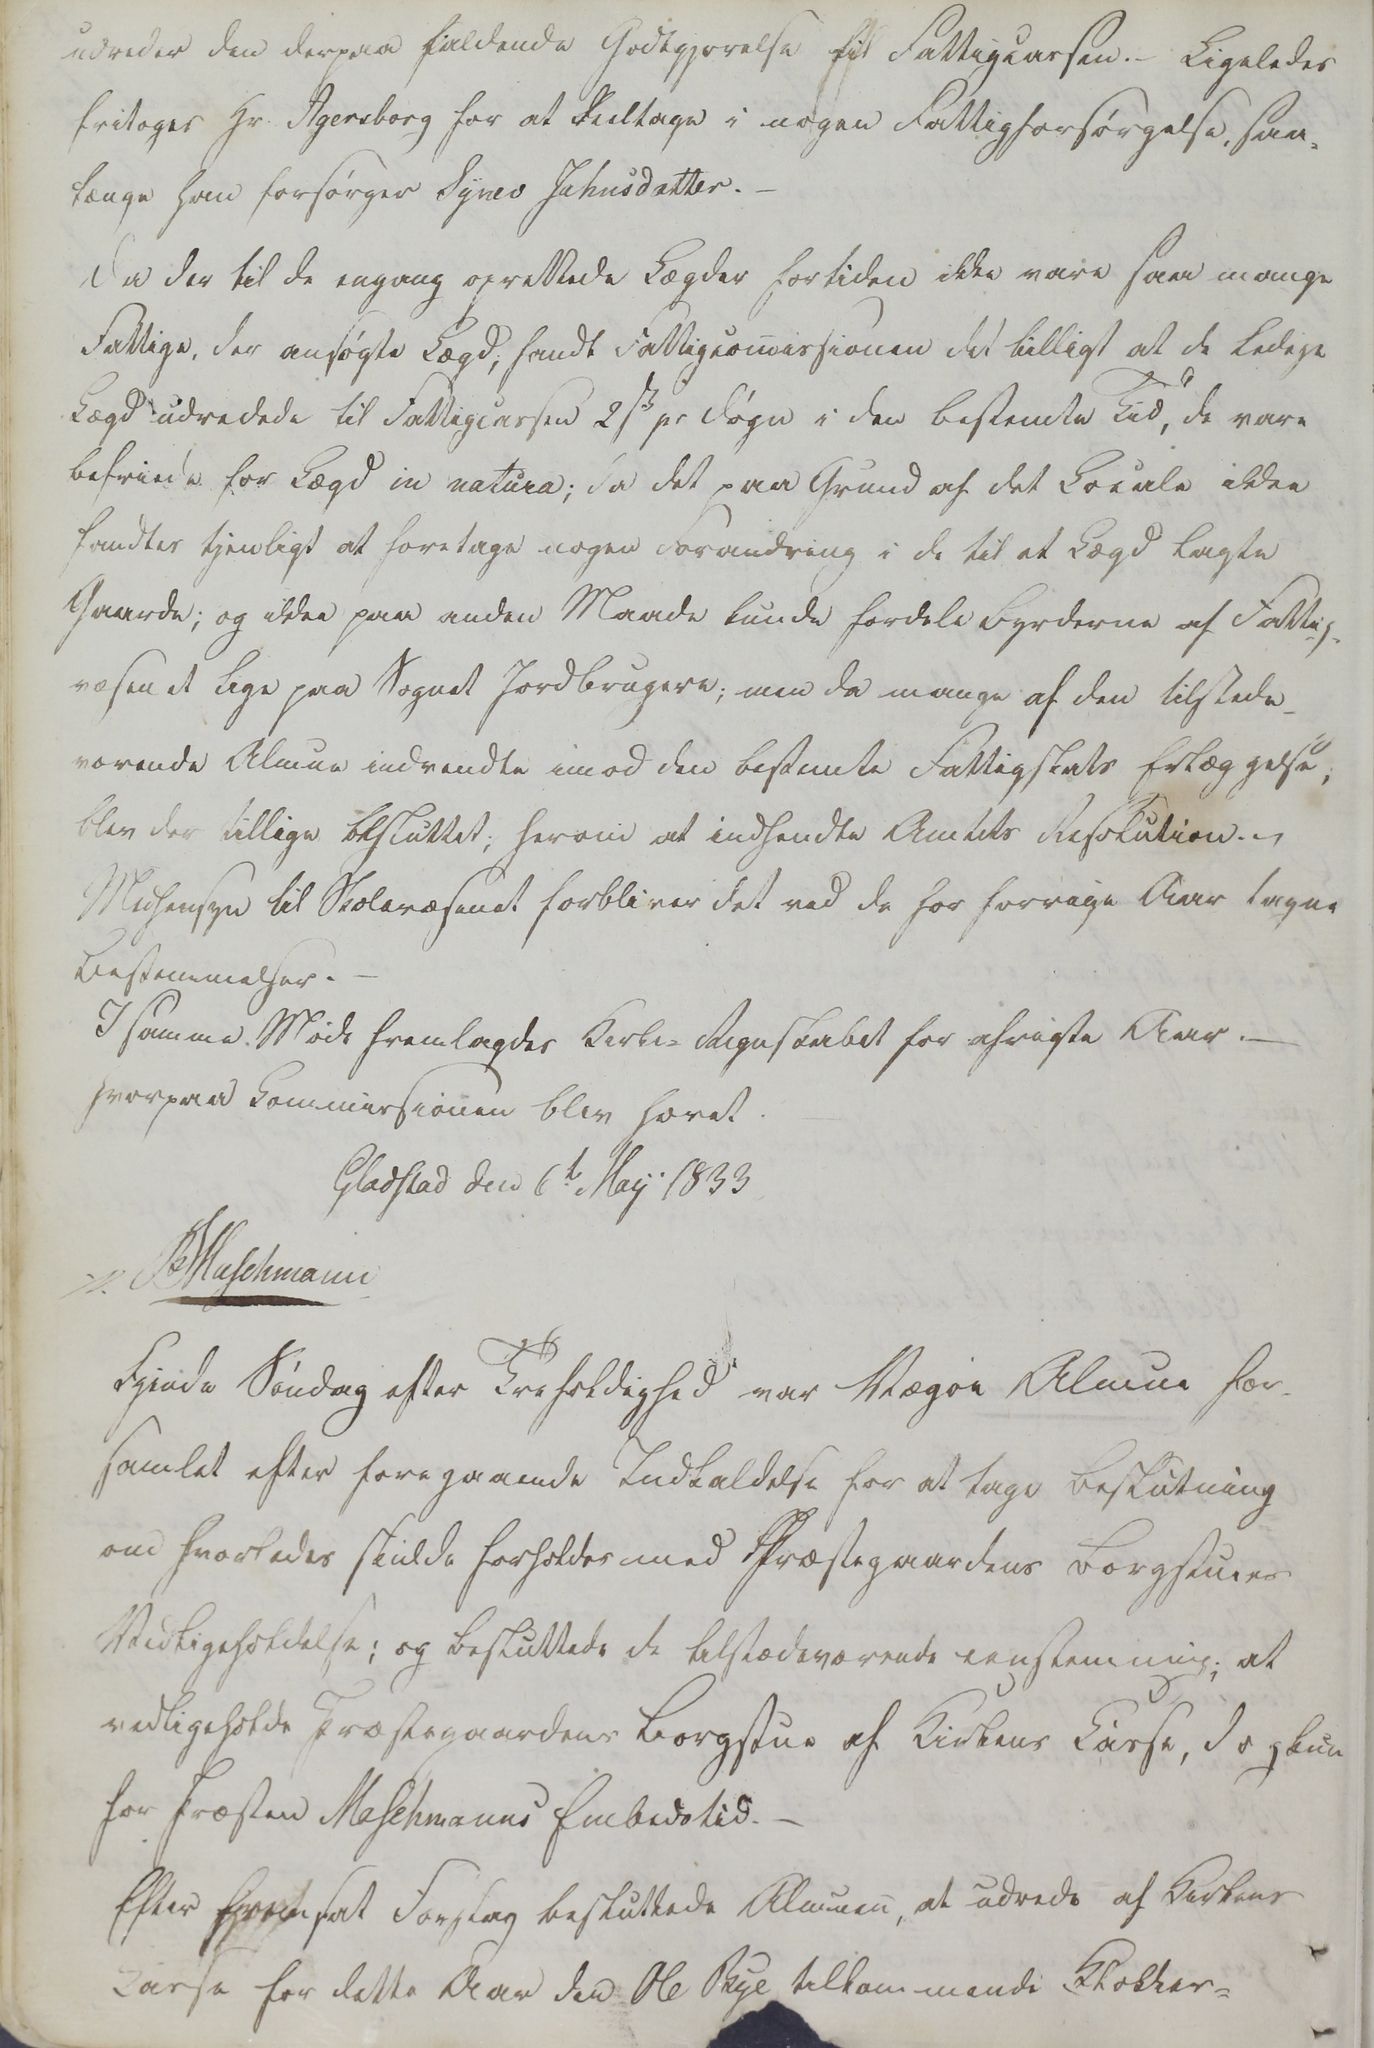 udreder den derpaa faldende Godtgjørelse til Fattigcassen. – Ligeledes
fritoges Hr. Agersborg for at deeltage i nogen Fattigforsørgelse, saa-
længe han forsørger Synev Jahnsdatter. –
Da der til de engang oprettede Lægder for tiden ikke vare saa mange
Fattige, der ansøgte Lægd, fandt Fattigcommissionen det billigt at de ledige
Lægd udredede til Fattigcassen 2 s pr Døgn i den bestemte Tid, de vare
befriede for Lægd in natura; da det paa Grund af det Locale ikke
fandtes tjenligt at foretage nogen Forandring i de til et Lægd lagte
Gaarde; og ikke paa anden Maade kunde fordele Byrderne af Fattig-
væsenet lige paa Sognet Jordbrugere; men da mange af den tilstede-
værende Almue indvendte imod den bestemte Fattigskats Erlæggelse,
blev der tillige besluttet, herom at indhendte Amtets Resolution. –
Medhensyn til Skolevæsenet forbliver det ved de for forrige Aar tagne
Bestemmelser. –
I samme Møde fremlagdes Kirke-Regnskabet for afvigte Aar. –
hvorpaa Commissionen blev hævet.
Gladstad den 6t May 1833
Maschmann
Søndag efter Trefoldighed var Vegøe Almue for-
samlet efter foregaaende Indkaldelse for at tage Beslutning
om hvorledes skulde forholdes med Præstegaardens Borgstues
Vedligeholdelse; og besluttede de tilstedeværende eenstemmig, at
vedligeholde Præstegaardens Borgstue af Kirkens Casse, dog kun
for Præsten Maschmanns Embedstid. –
Efter fremsat Forslag besluttede Almuen, at udrede af Kirkens
Casse for dette Aar den Ole Rye tilkommende Klokker-